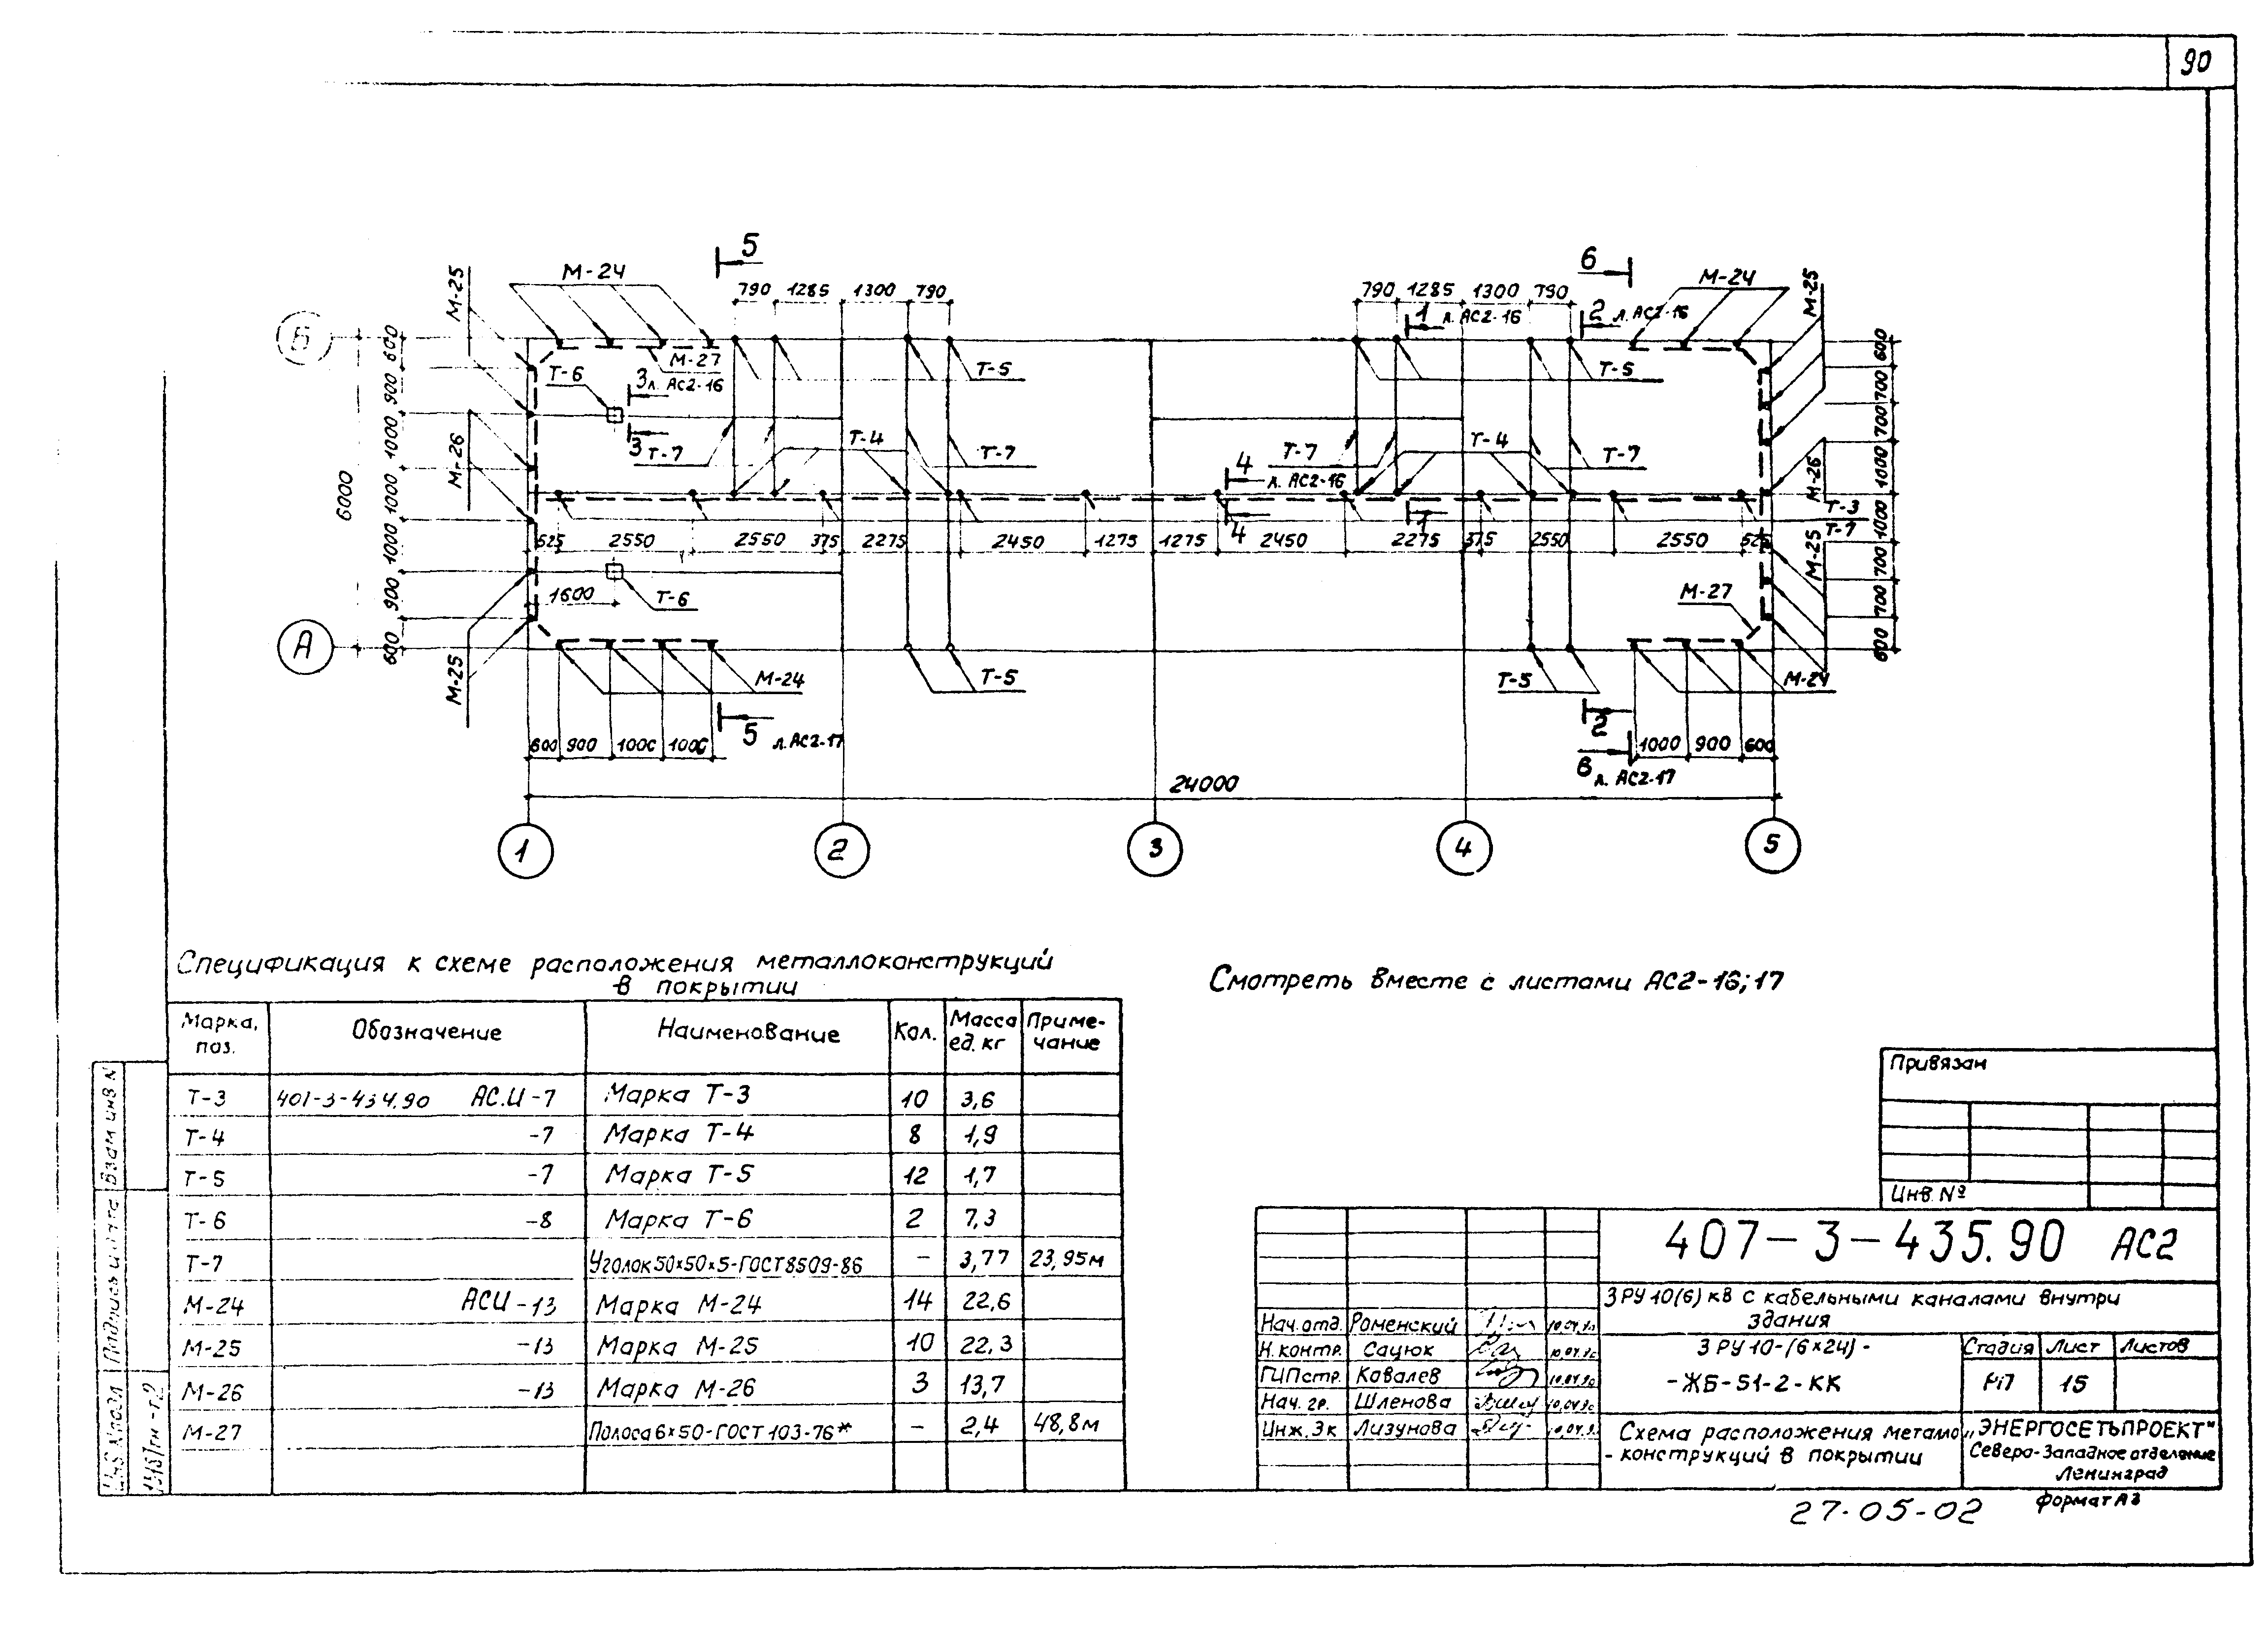 90
5
6
М-24
М-24
М-25
М-25
790 1285 1300 790
790 1285 1300 790
1 л. АС2-16
2 л. АС2-16
Б
М-27
Т-6
3 л. АС2-16
Т-5
Т-5
600 900 1000 1000 1000 900 600
6000
600 700 700 1000 1000 700 700 600
М-26
3
Т-7
Т-4
Т-7
Т-7
Т-4
Т-7
4
л. АС2-16
М-26
Т-3
Т-7
4
1
525 2550 2550 375 2275 2450 1275 1275 2450 2275 375 2550 2550 525
М-25
1600
Т-6
М-27
А
М-25
М-24
Т-5
Т-5
М-24
5 л. АС2-17
2
600 900 1000 1000
1000 900 600
6 л. АС2-17
24000
1 2 3 4 5
Спецификация к схеме расположения металлоконструкций
в покрытии
Смотреть вместе с листами АС2-16;17
Марка, поз. Обозначение Наименование Кол. Масса ед. кг Примечание
Т-3 407-3-434.90 АС.И-7 Марка Т-3 10 3,6
Т-4 -7 Марка Т-4 8 1,9
Т-5 -7 Марка Т-5 12 1,7
Т-6 -8 Марка Т-6 2 7,3
Т-7 Уголок 50×50×5-ГОСТ 8509-86 - 3,77 23,95м
М-24 АСИ-13 Марка М-24 14 22,6
М-25 -13 Марка М-25 10 22,3
М-26 -13 Марка М-26 3 13,7
М-27 Полоса 6×50-ГОСТ 103-76* - 2,4 48,8м
Взам инв N
Подпись и дата
Инв. N подл
Привязан
Инв. №
407-3-435.90 АС2
ЗРУ 10(6) кв с кабельными каналами внутри
здания
Нач. отд. Роменский 10.04.90
Н. контр. Сацюк 10.04.90
ГИП стр. Ковалев 10.04.90
Нач. гр. Шленова 10.04.90
Инж. Эк Лизунова 10.04.90
ЗРУ 10-(6×24)-
-ЖБ-51-2-КК
Стадия Лист Листов
РП 15
Схема расположения металло
-конструкций в покрытии
„ЭНЕРГОСЕТЬПРОЕКТ"
Северо-Западное отделение
Ленинград
Формат А3
27-05-02